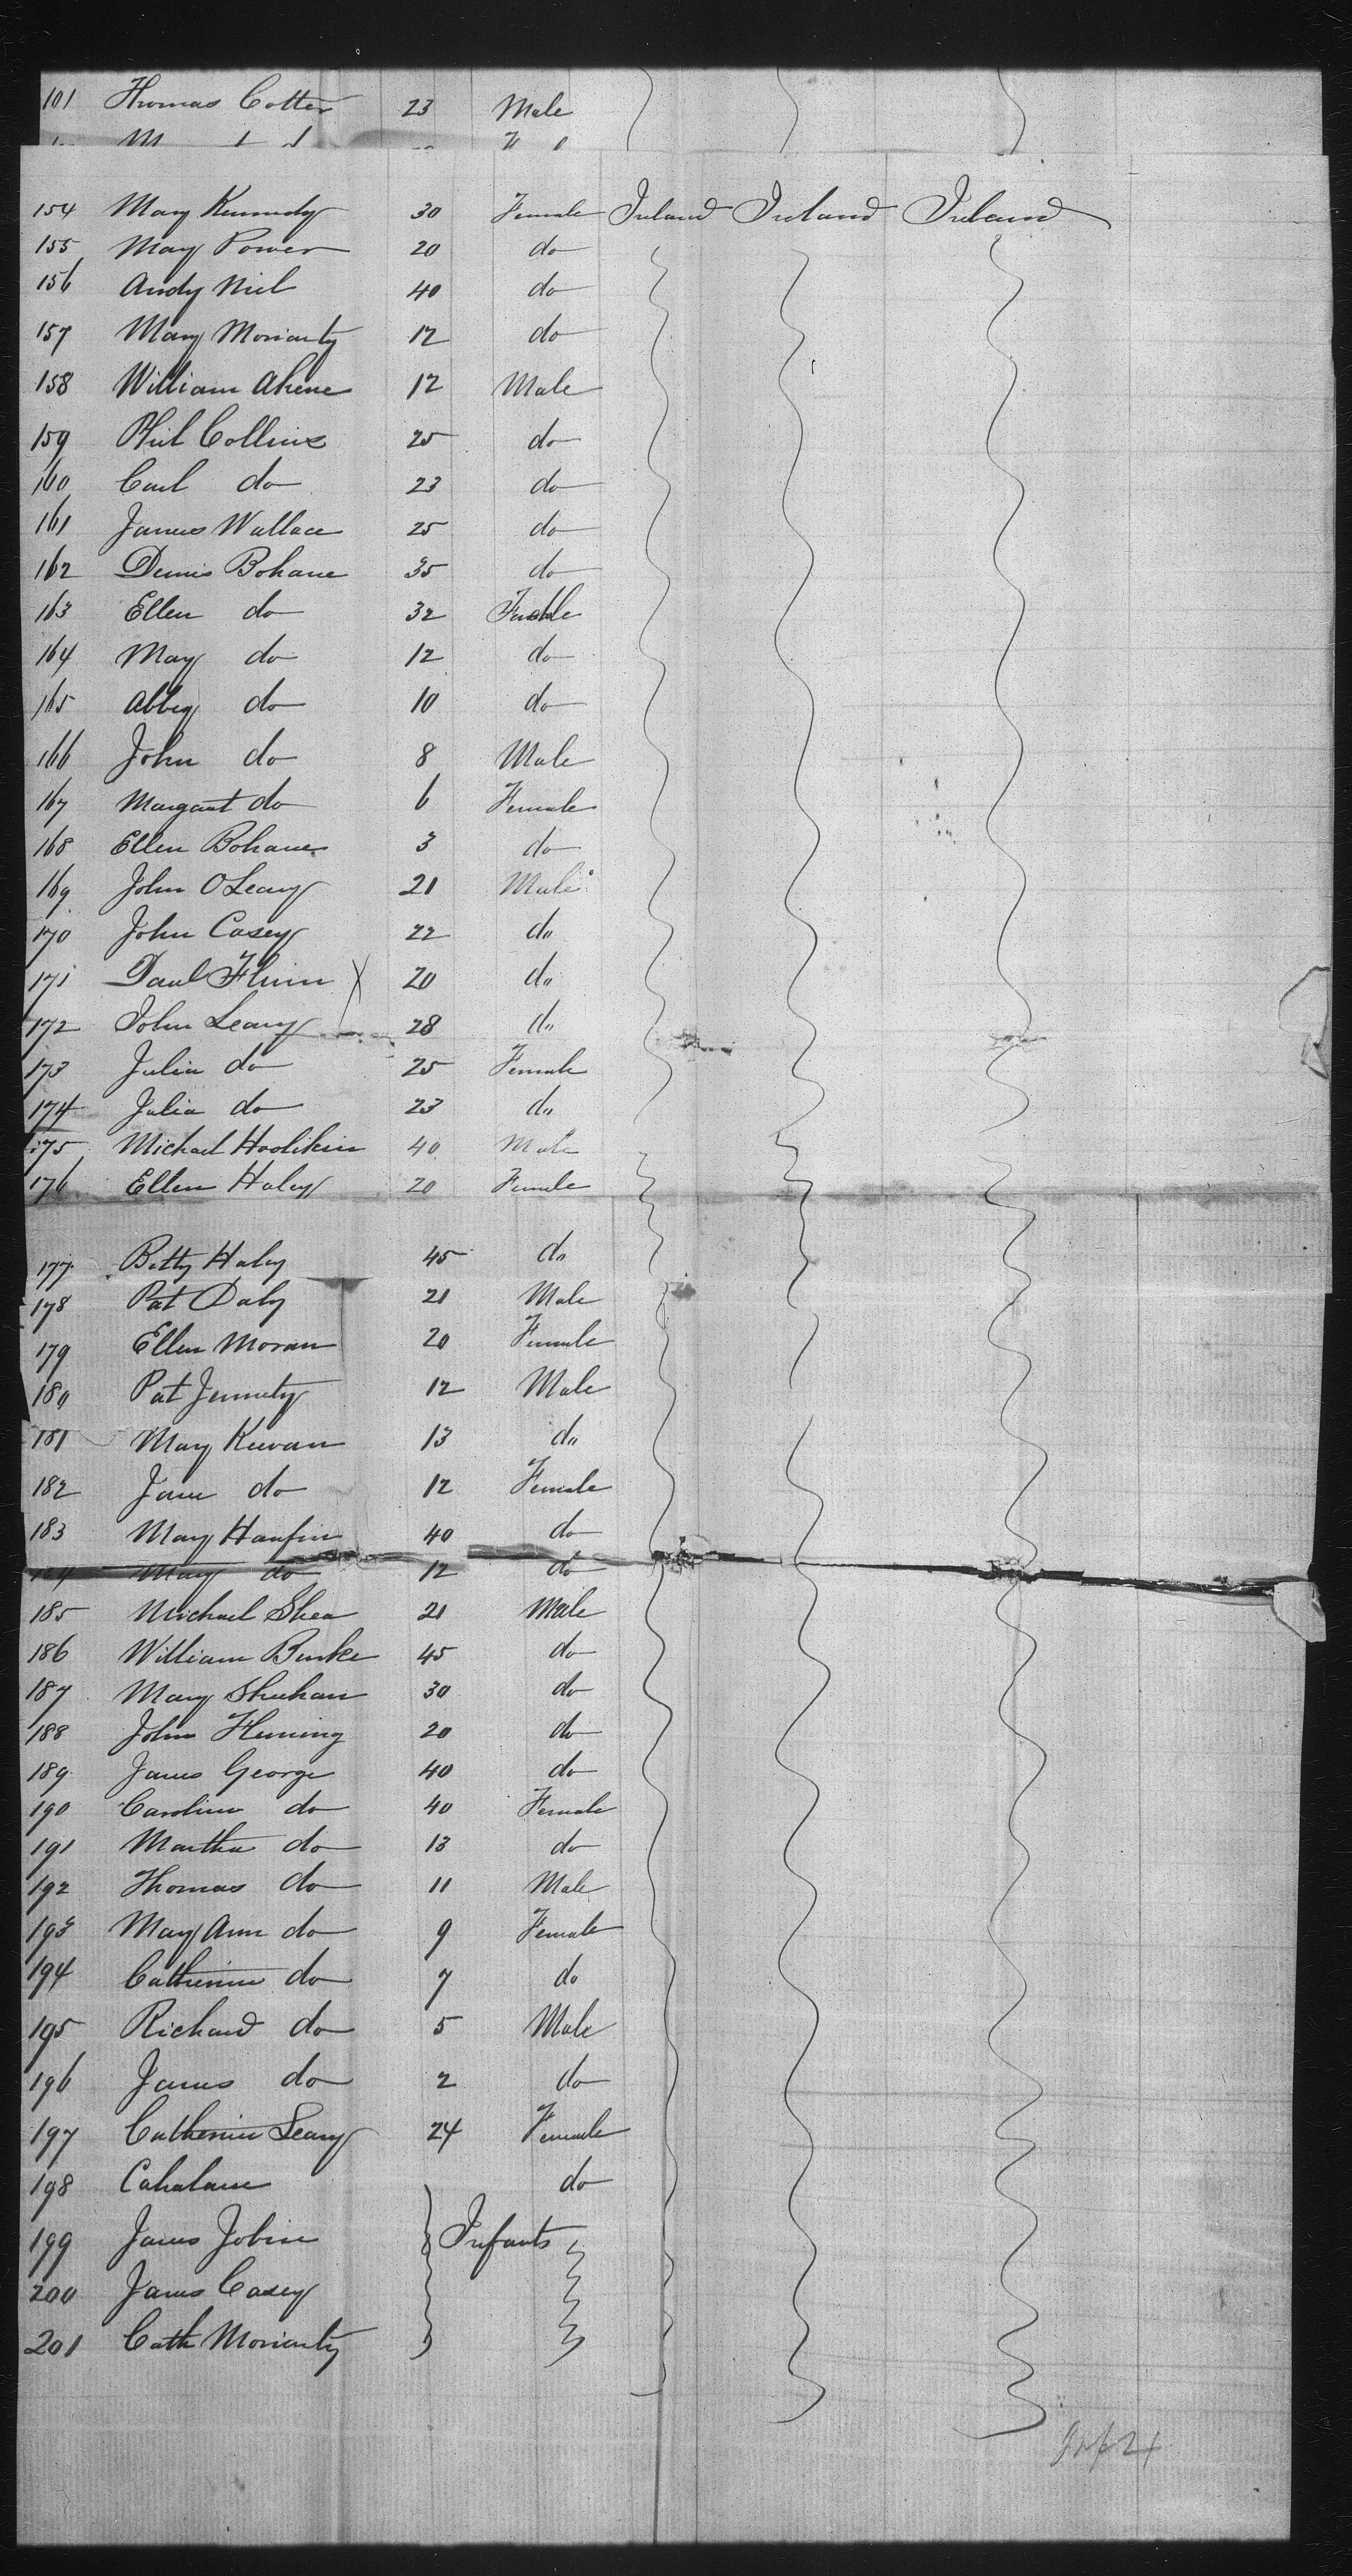 101 Thomas Cotter 23 Male
154 Mary Kennedy 30 Female Ireland Ireland Ireland
155 Mary Power 20 do
156 Andy Niel 40 do
157 Mary Moriarty 12 do
158 William Ahene 12 Male
159 Phil Collins 25 do
160 Carl do 23 do
161 James Wallace 25 do
162 Dennis Bohane 35 do
163 Ellen do 32 Female
164 Mary do 12 do
165 Abbey do 10 do
166 John do 8 Male
167 Margaret do 6 Female
168 Ellen Bohane 3 do
169 John OLeary 21 Male
170 John Casey 22 do
171 Daul Flinn X 20 do
172 John Leary 28 do
173 Julia do 25 Female
174 Julia do 23 do
175 Michael Hoolihin 40 Male
176 Ellen Haley 20 Female
177 Betty Haley 45 do
178 Pat Daly 21 Male
179 Ellen Moran 20 Female
180 Pat 12 Male
181 Mary Keevan 13 do
182 Jane do 12 Female
183 Mary Hanfin 40 do
184 Mary do 12 do
185 Michael Shea 21 Male
186 William Burke 45 do
187 Mary Sheehan 30 do
188 John Fleming 20 do
189 James George 40 do
190 Caroline do 40 Female
191 Martha do 13 do
192 Thomas do 11 Male
193 Mary Ann do 9 Female
194 Catherine do 7 do
195 Richard do 5 Male
196 James do 2 do
197 Catherine Leary 24 Female
198 Cahalane do
199 James Jobin Infants
200 James Casey
201 Cath Moriarty